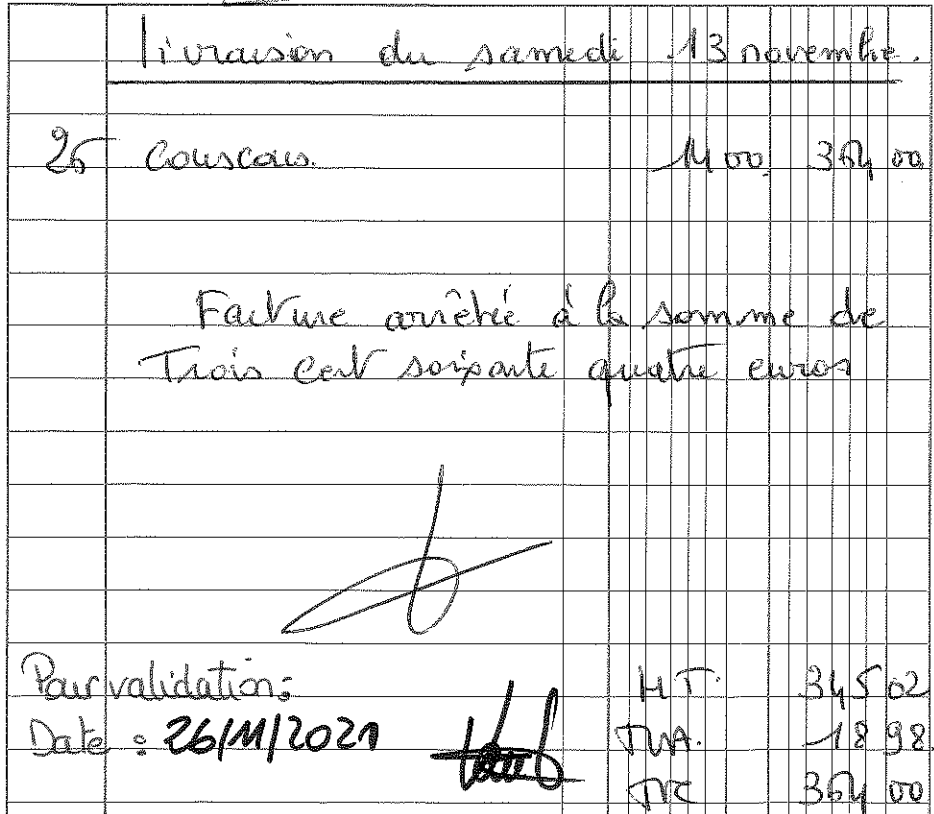 livraison du samedi 13 novembre.
26 Couscous. 14 00 364 00
Facture arrêtée à la somme de
Trois cent soixante quatre euros
Pour validation: HT. 345 02
Date : 26/11/2021 TVA. 18 98
TTC 364 00